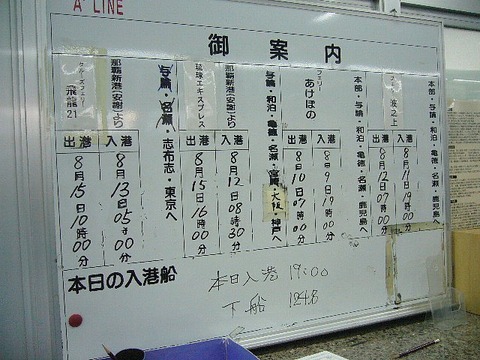 A'LINE
御案内
本部・与論・和泊・亀徳・名瀬 鹿児島へ
フェリー 波之上
入港
8月11日19時00分
出港
8月12日07時00分
本部・与論・和泊・亀徳・名瀬 鹿児島へ
フェリー あけぼの
入港
8月9日19時00分
出港
8月10日07時00分
与論・和泊・亀徳・名瀬・宮崎・大阪・神戸へ
那覇新港(安謝)より
琉球エキスプレス
入港
8月12日08時30分
出港
8月15日16時00分
与論・名瀬・志布志・東京へ
那覇新港(安謝)より
クルーズフェリー 飛龍21
入港
8月13日05時00分
出港
8月15日10時00分
本日の入港船
本日入港 19:00
下船 124名